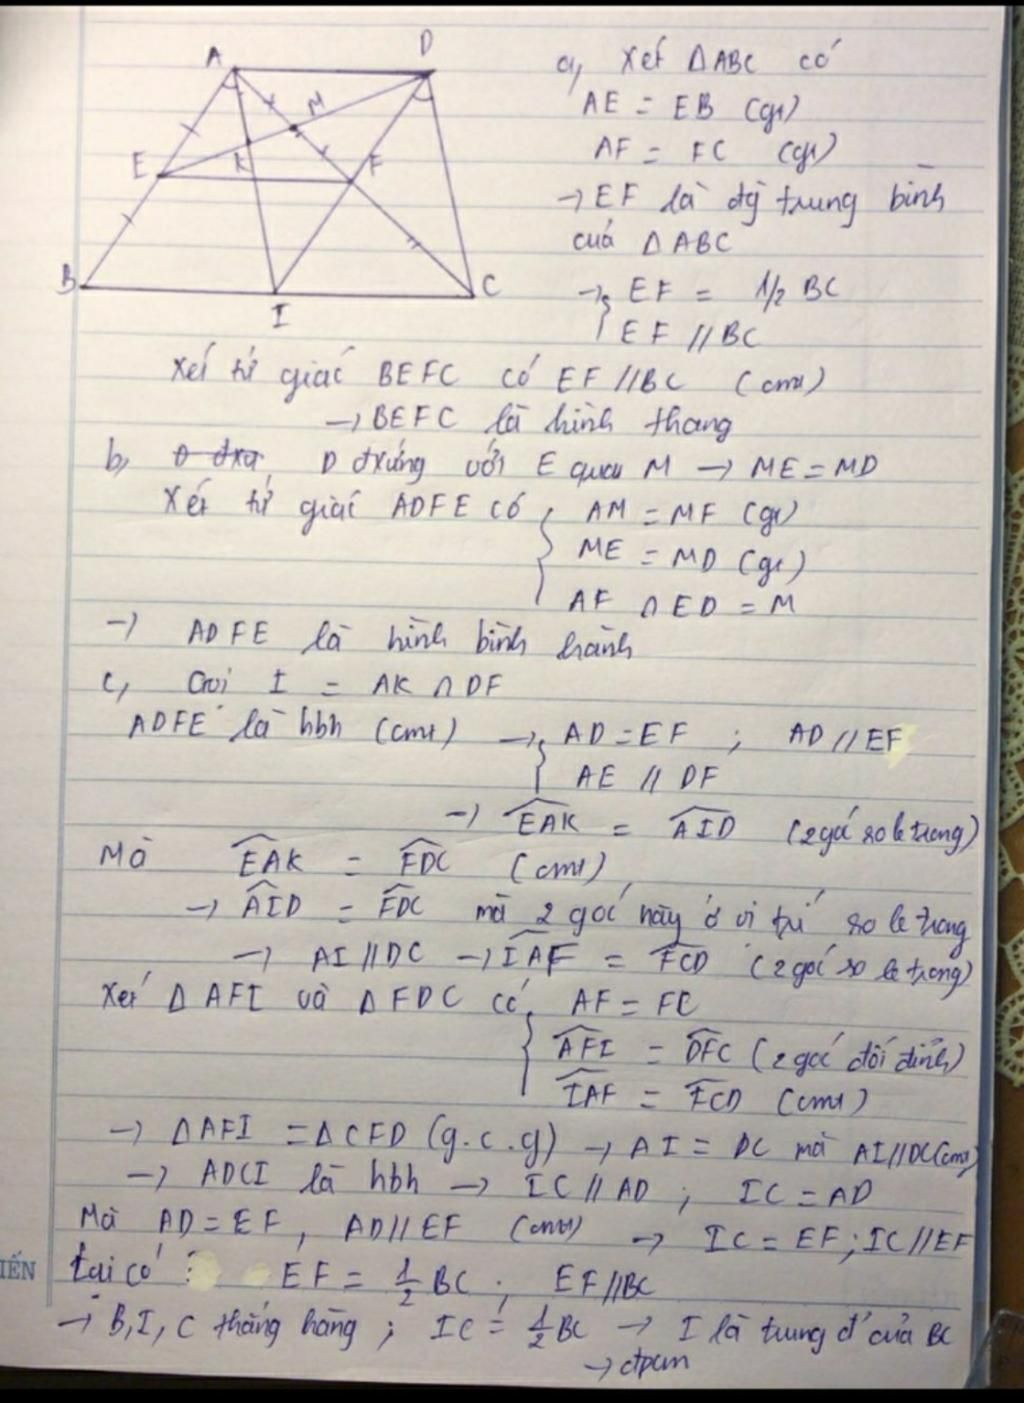 A
D
M
E
K
F
B
I
C
a, Xét ΔABC có
AE = EB (gt)
AF = FC (gt)
→ EF là đg trung bình
của ΔABC
→ { EF = 1/2 BC
EF // BC
Xét tứ giác BEFC có EF // BC (cmt)
→ BEFC là hình thang
b, D đxứng với E qua M → ME = MD
Xét tứ giác ADFE có { AM = MF (gt)
ME = MD (gt)
AF ∩ ED = M
→ ADFE là hình bình hành
c, Gọi I = AK ∩ DF
ADFE là hbh (cmt) → { AD = EF ; AD // EF
AE // DF
→ ^EAK = ^AID (2 góc so le trong)
Mà ^EAK = ^FDC (cmt)
→ ^AID = ^FDC mà 2 góc này ở vị trí so le trong
→ AI // DC → ^IAF = ^FCD (2 góc so le trong)
Xét Δ AFI và Δ FDC có { AF = FC
^AFI = ^DFC (2 góc đối đỉnh)
^IAF = ^FCD (cmt)
→ ΔAFI = ΔCFD (g.c.g) → AI = DC mà AI // DC (cmt)
→ ADCI là hbh → IC // AD ; IC = AD
Mà AD = EF, AD // EF (cmt) → IC = EF ; IC // EF
IẾN
Lại có : EF = 1/2 BC ; EF // BC
→ B, I, C thẳng hàng ; IC = 1/2 BC → I là trung đ' của BC
→ đpcm